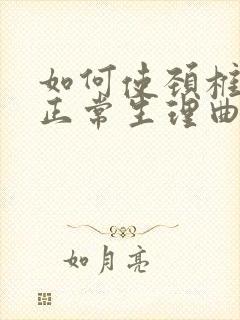 如何使颈椎
正常生理曲
如月亮